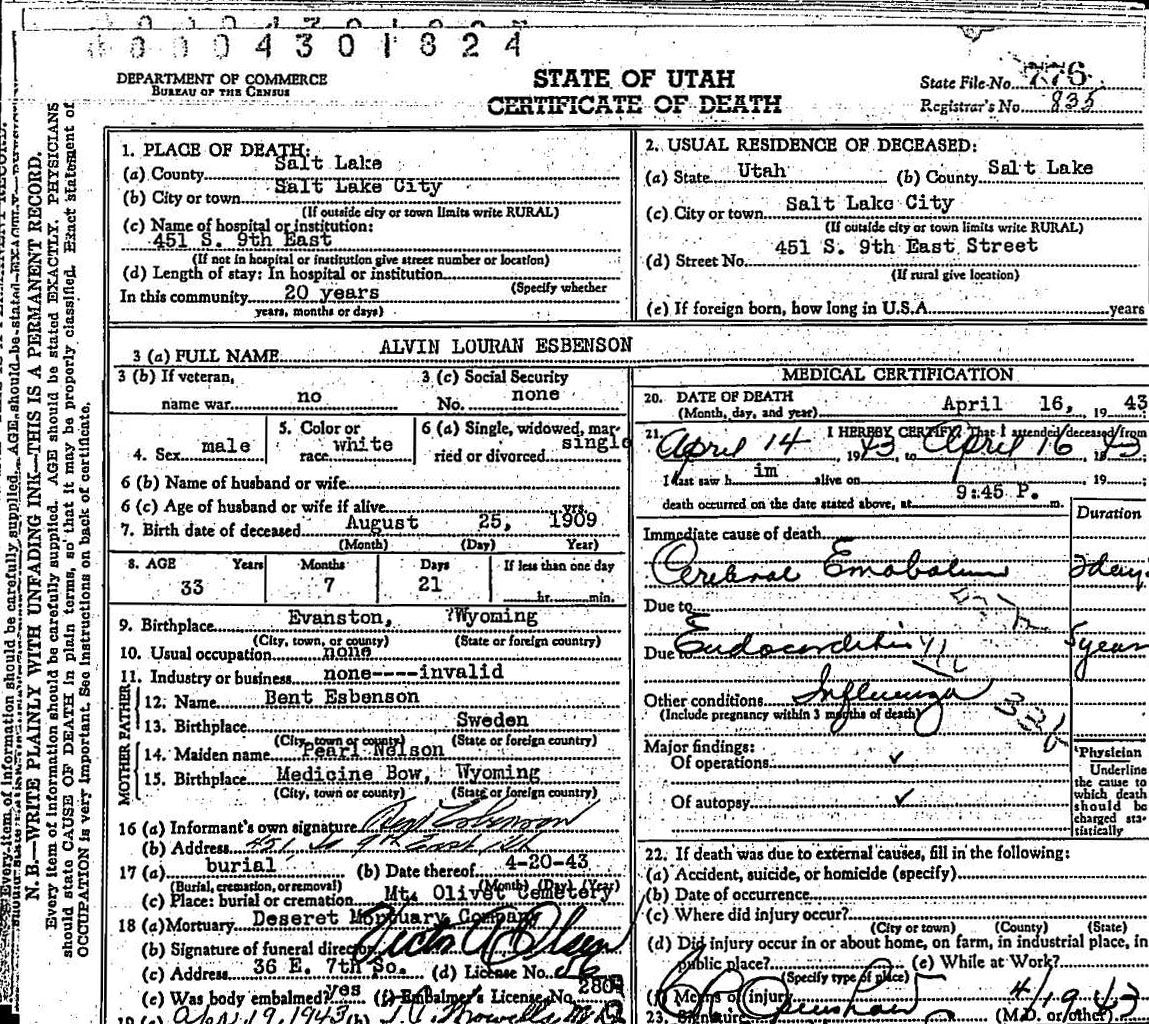 0 0 0 4 3 0 1 8 2 4
DEPARTMENT OF COMMERCE
BUREAU OF THE CENSUS
STATE OF UTAH
CERTIFICATE OF DEATH
State File No. 776
Registrar's No. 835
N. B.—WRITE PLAINLY WITH UNFADING INK—THIS IS A PERMANENT RECORD.
Every item of information should be carefully supplied. AGE should be stated EXACTLY. PHYSICIANS
should state CAUSE OF DEATH in plain terms, so that it may be properly classified. Exact statement of
OCCUPATION is very important. See instructions on back of certificate.
1. PLACE OF DEATH:
(a) County Salt Lake
(b) City or town Salt Lake City
(If outside city or town limits write RURAL)
(c) Name of hospital or institution:
451 S. 9th East
(If not in hospital or institution give street number or location)
(d) Length of stay: In hospital or institution
(Specify whether
In this community 20 years
years, months or days)
2. USUAL RESIDENCE OF DECEASED:
(a) State Utah (b) County Salt Lake
(c) City or town Salt Lake City
(If outside city or town limits write RURAL)
(d) Street No. 451 S. 9th East Street
(If rural give location)
(e) If foreign born, how long in U.S.A. years
3 (a) FULL NAME ALVIN LOURAN ESBENSON
3 (b) If veteran,
name war no
3 (c) Social Security
No. none
4. Sex male
5. Color or
race white
6 (a) Single, widowed, mar-
ried or divorced single
6 (b) Name of husband or wife
6 (c) Age of husband or wife if alive yrs.
7. Birth date of deceased August 25, 1909
(Month) (Day) Year)
8. AGE Years Months Days If less than one day
33 7 21 hr. min.
9. Birthplace Evanston, ?Wyoming
(City, town, or county) (State or foreign country)
10. Usual occupation none
11. Industry or business none----invalid
FATHER
12. Name Bent Esbenson
13. Birthplace Sweden
(City, town or county) (State or foreign country)
MOTHER
14. Maiden name Pearl Nelson
15. Birthplace Medicine Bow, Wyoming
(City, town or county) (State or foreign country)
16 (a) Informant's own signature
(b) Address 451 So 9th East
17 (a) burial (b) Date thereof 4-20-43
(Burial, cremation, or removal) (Month) (Day) (Year)
(c) Place: burial or cremation Mt. Olivet Cemetery
18 (a) Mortuary Deseret Mortuary Company
(b) Signature of funeral director Victor A Olsen
(c) Address 36 E. 7th So. (d) License No.
(e) Was body embalmed? yes (f) Embalmer's License No. 280
19 (a) Apr. 19, 1943 (b)
MEDICAL CERTIFICATION
20. DATE OF DEATH
(Month, day, and year) April 16, 19 43
21. I HEREBY CERTIFY That I attended deceased from
April 14 1943, to April 16 1943;
I last saw h im alive on 19 ;
death occurred on the date stated above, at 9:45 P. m.
Duration
Immediate cause of death
Cerebral Emobalum 2 days
Due to
Due to Endocorditis 5 years
Other conditions Influenza
(Include pregnancy within 3 months of death)
Major findings:
Of operations ✓
Of autopsy ✓
Physician
Underline
the cause to
which death
should be
charged sta-
tistically
22. If death was due to external causes, fill in the following:
(a) Accident, suicide, or homicide (specify)
(b) Date of occurrence
(c) Where did injury occur?
(City or town) (County) (State)
(d) Did injury occur in or about home, on farm, in industrial place, in
public place? (e) While at Work?
(Specify type of place)
(f) Means of injury
23. Signature (M.D. or other) 4/19 43